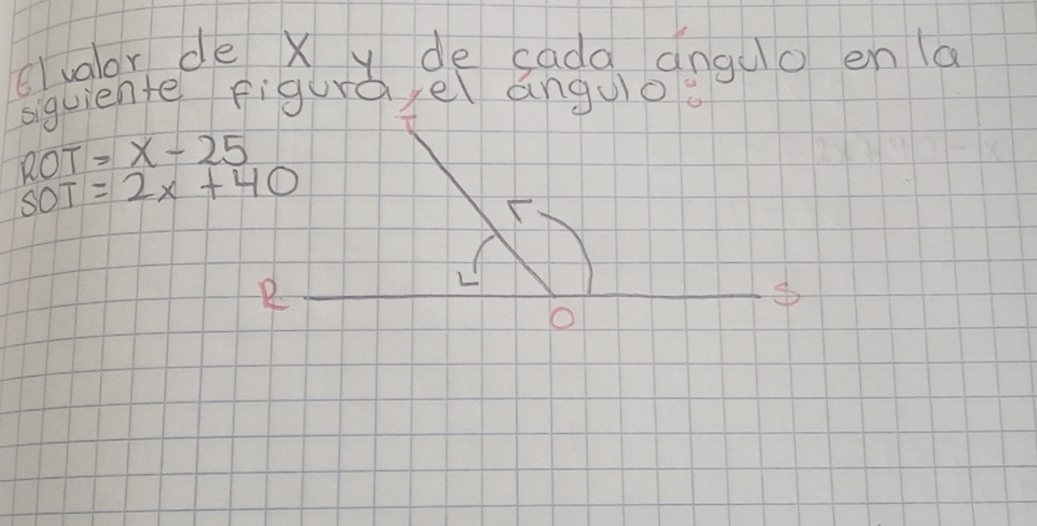 El valor de x y de cada ángulo en la
siguiente figura, el ángulo:
T
ROT = x - 25
SOT = 2x + 40
R
S
O